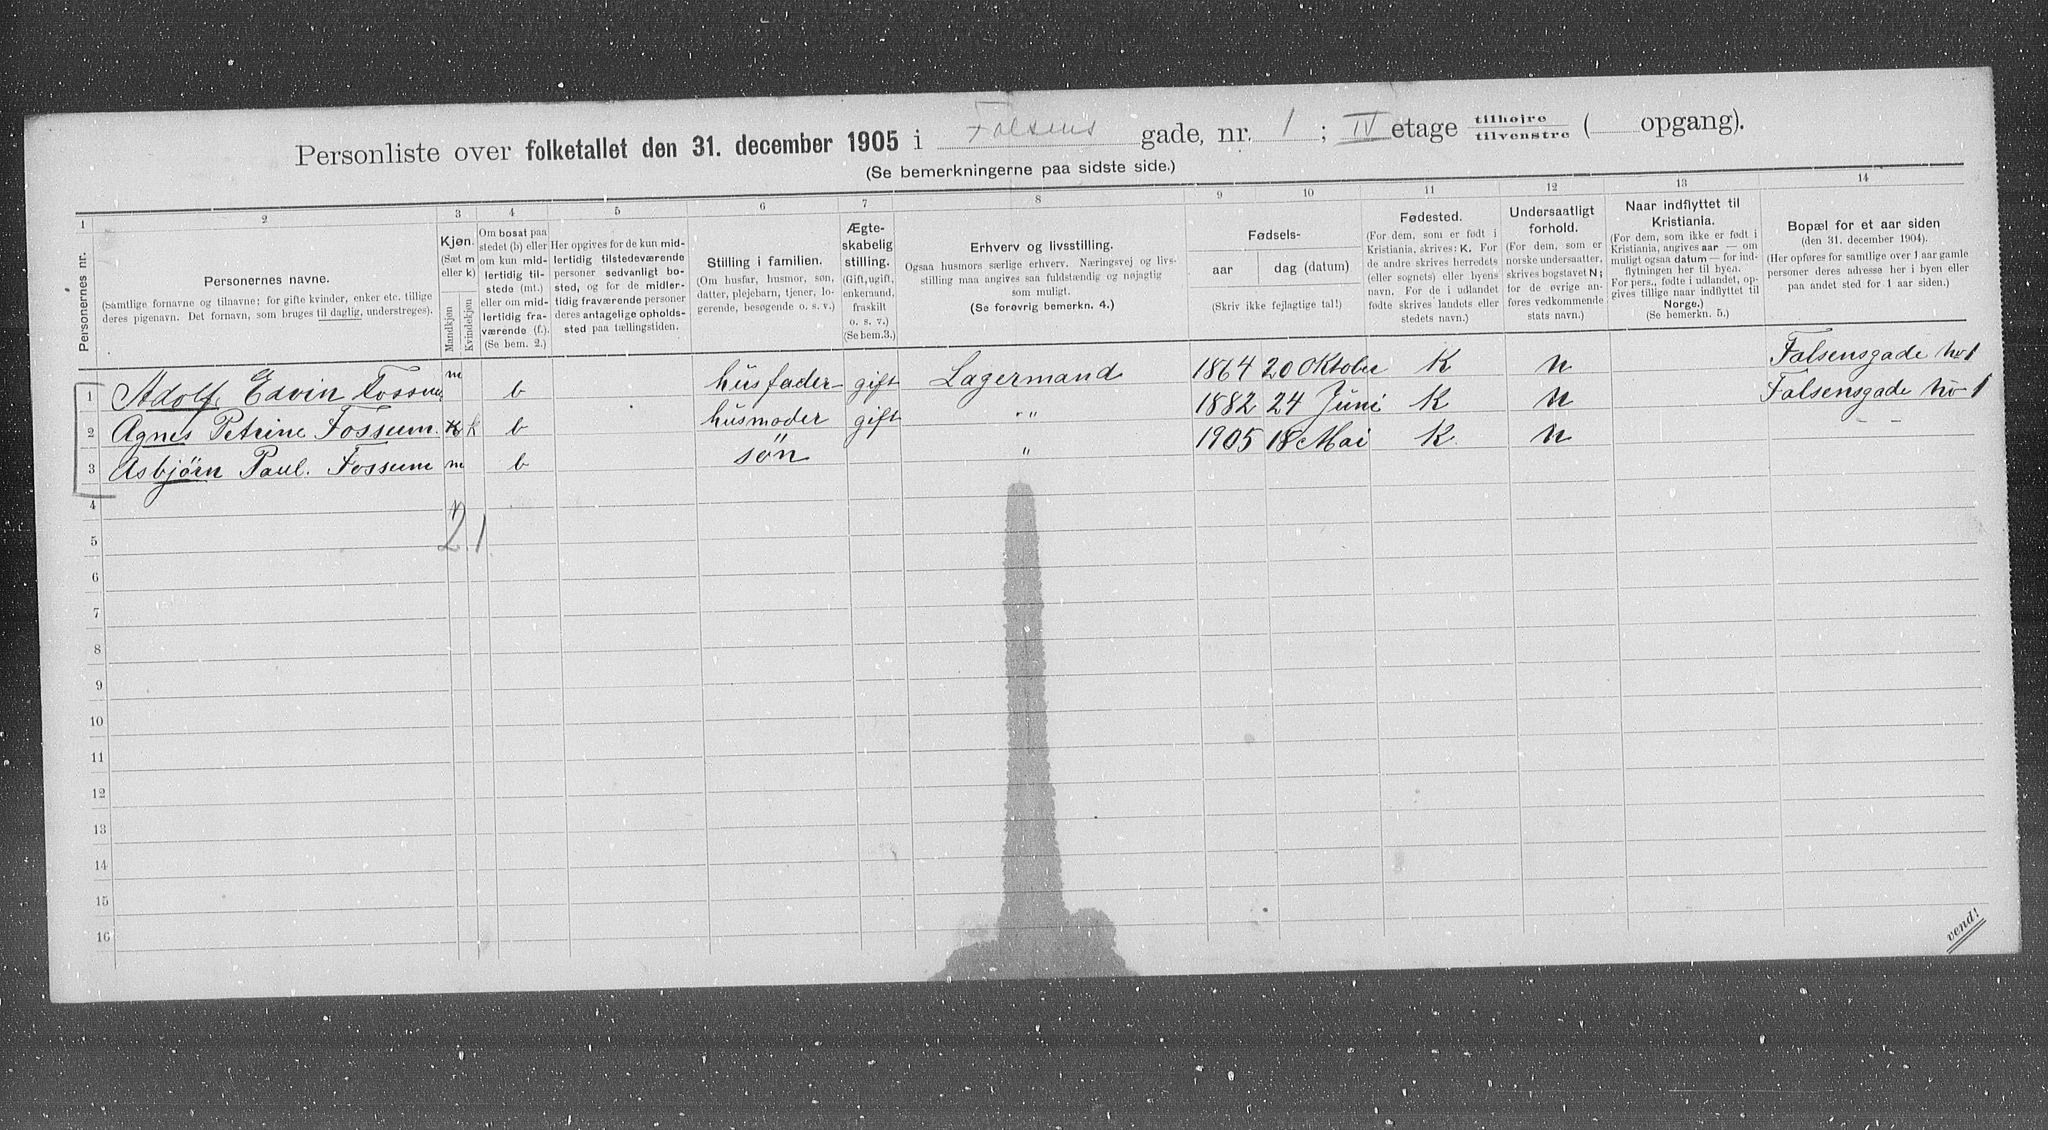 Personliste over folketallet den 31. december 1905 i Falsens gade, nr. 1; IV etage tilhøjre / tilvenstre ( opgang).
(Se bemerkningerne paa sidste side.)
1 2 3 4 5 6 7 8 9 10 11 12 13 14
Personernes nr.
Personernes navne.
(Samtlige fornavne og tilnavne; for gifte kvinder, enker etc. tillige
deres pigenavn. Det fornavn, som bruges til daglig, understreges).
Kjøn.
(Sæt m
eller k)
Mandkjøn
Kvindekjøn
Om bosat paa
stedet (b) eller
om kun mid-
lertidig til-
stede (mt.)
eller om mid-
lertidig fra-
værende (f.).
(Se bem. 2.)
Her opgives for de kun mid-
lertidig tilstedeværende
personer sedvanligt bo-
sted, og for de midler-
tidig fraværende personer
deres antagelige opholds-
sted paa tællingstiden.
Stilling i familien.
(Om husfar, husmor, søn,
datter, plejebarn, tjener, lo-
gerende, besøgende o. s. v.)
Ægte-
skabelig
stilling.
(Gift, ugift,
enkemand,
fraskilt
o. s. v.)
(Se bem. 3.)
Erhverv og livsstilling.
Ogsaa husmors særlige erhverv. Næringsvej og livs-
stilling maa angives saa fuldstændig og nøjagtig
som muligt.
(Se forøvrig bemerkn. 4.)
Fødsels-
aar
dag (datum)
(Skriv ikke fejlagtige tal!)
Fødested.
(For dem, som er født i
Kristiania, skrives: K. For
de andre skrives herredets
(eller sognets) eller byens
navn. For de i udlandet
fødte skrives landets eller
stedets navn.)
Undersaatligt
forhold.
(For dem, som er
norske undersaatter,
skrives bogstavet N;
for de øvrige an-
føres vedkommende
stats navn.)
Naar indflyttet til
Kristiania.
(For dem, som ikke er født i
Kristiania, angives aar — om
muligt ogsaa datum — for ind-
flytningen her til byen.
For pers., fødte i udlandet, op-
gives tillige naar indflyttet til
Norge.)
(Se bemerkn. 5.)
Bopæl for et aar siden
(den 31. december 1904).
(Her opføres for samtlige over 1 aar gamle
personer deres adresse her i byen eller
paa andet sted for 1 aar siden.)
1 Adolf Edvin Fossum m b husfader gift Lagermand 1864 20 Oktober K N Falsensgade no 1
2 Agnes Petrine Fossum. k k b husmoder gift " 1882 24 Juni K N Falsensgade no 1
3 Asbjørn Paul. Fossum m b søn " 1905 18 Mai K. N – –
4
2 1
5
6
7
8
9
10
11
12
13
14
15
16
vend!